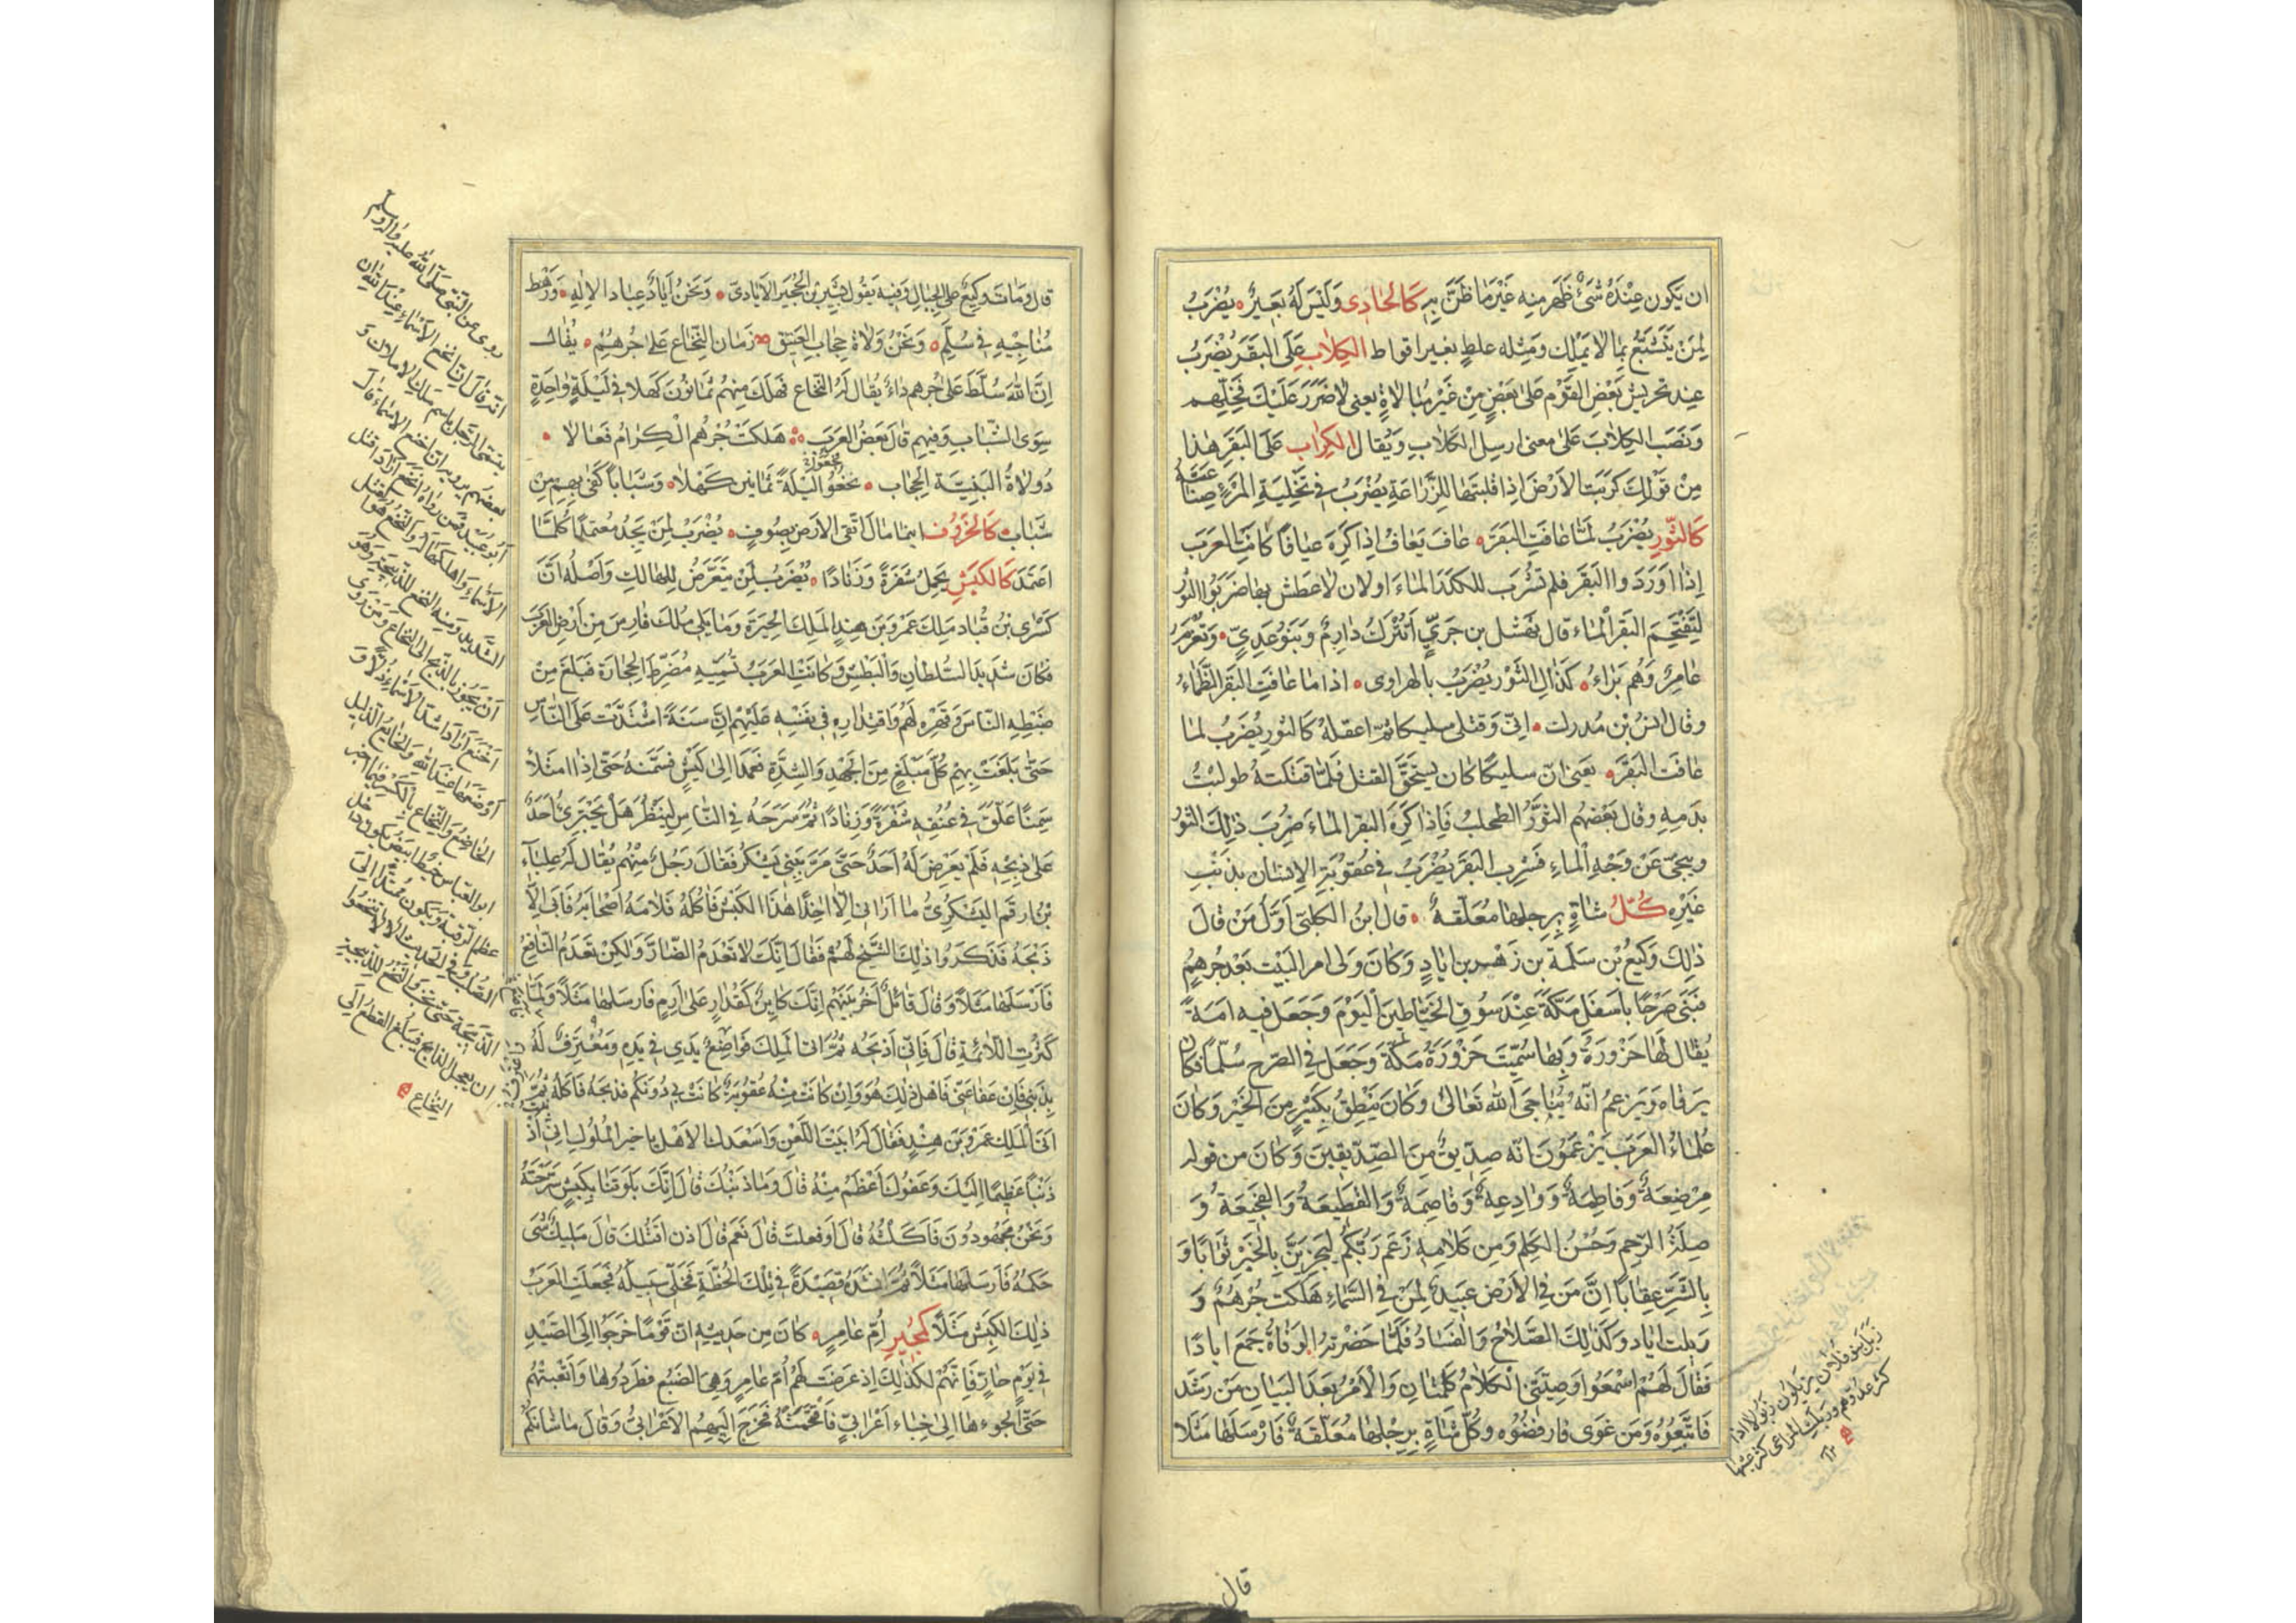 ان يكون عِنْدَهُ شَيْءٌ ظَهَر منه غَيْرَ مَا ظَنَّ بِهِ كَالحَادِى وَلَيْسَ لَهُ بَعِيرٌ يُضْرَبُ
لِمَنْ يَتَشَبَّعُ بِمَا لا يَمْلِك وَمِثله عاطٍ بغير انواط الكِلابَ عَلَى البَقَرِ يُضْرَبُ
عِند تحريش بَعْضِ القَوْم عَلى بَعْضٍ مِنْ غَيْرِ مُبَالاةٍ يعنى لا ضَرَرَ عَلَيْكَ فَخَلِّهِم
وَنَصَب الكِلابَ عَلى معنى ارسِل الكلابَ وَيُقال الكِرابَ عَلَى البَقَرِ هٰذا
مِنْ قَوْلِكَ كَرَبْتُ الأَرْضَ اِذا قلبتَهَا للزِّرَاعَةِ يُضْرَبُ فى تَخْلِيَةِ المَرْءِ وصناعَتَهُ
كَالثَّوْرِ يُضْرَبُ لَمَّا عَافَتِ البَقَرُ عافَ يَعَافُ اِذا كَرِهَ عيافًا كَانَتِ العَرَبُ
إِذَا اَوْرَدَوا البَقَرَ فلم تشْرَب لكَدَرِ المَاءَ او لان لا عَطَش بها ضَرَبُوا الثور
لِتَقْتَحِمَ البَقَرُ الْمَاءَ قال نهْشَل بن حَرِّيٍّ اَتُتْرَكُ دَارِمٌ وَبَنُو عَدِيٍّ وَتَغْرَمُ
عَامِرٌ وَهُم بَرَاءُ كَذَاك الثَّوْرُ يُضْرَبُ بالهراوى اذا ما عَافَتِ البَقَرُ الظِّمَاءُ
وقال انسُ بْن مُدرك اِنِّى وَقتلى سليكا ثمّ اعقلهُ كَالثورِ يُضرَبُ لما
عَافَتِ البَقَرُ يَعنى انّ سليكًا كان يستحِقُّ القتل فَلَمَّا قتلتهُ طولبتُ
بدَمِهِ وقال بَعْضُهُم الثَّوْرُ الطحلب فَاِذا كَرِهَ البقر المَاءَ ضُرِبَ ذٰلك الثَّوْرُ
ونحّى عَنْ وَجْهِ المَاءِ فَشَرِب البَقَرُ يُضْرَبُ فى عُقوْبَةِ الإنسان بذَنْبِ
غَيْرِهِ كُلُّ شَاةٍ بِرِجلها مُعَلَّقةٌ قال ابنُ الكلبىّ أَوَّلُ مَنْ قَالَ
ذٰلِكَ وَكيعُ بْن سَلَمَة بن زهَيْر بن ايَادٍ وَكَانَ وَلِى امر البَيْت بَعْد جُرهُمٍ
فبَنَى صَرْحًا بِأَسفَلِ مَكَّةَ عِنْدَ سُوقِ الخيَّاطِينَ الْيَوْمَ وَجَعَلَ فيه امَةً
يُقَال لَهَا حَزْوَرَةُ وَبِهَا سُمِّيَت حَزْوَرَةُ مَكَّةَ وَجَعَلَ فى الصَّرحِ سُلَّمًا فكان
يَرقاه وَيَزعمُ اَنَّه يُنَاجى الله تَعَالىٰ وَكانَ يَنْطِقُ بكَثِيرٍ مِنَ الخَيْر وَكانَ
عُلماءُ العَرَب يَزْعمُونَ انّه صِدِّيقٌ مِنَ الصِّدِّيقِينَ وَكانَ من قوله
مُرْضِعَةٌ وَفَاطِمَةٌ وَوَادِعةٌ وَقَاصِمَةٌ وَالقَطِيعَةُ وَالفَجِيعَةُ وَ
صِلَةُ الرَّحِمِ وَحُسْنُ الكَلِمِ وَمِن كلامِهِ زَعَمَ رَبُّكُم ليَجزِيَنَّ بِالخَيْرِ ثَوَابًا وَ
بِالشَّرِّ عِقَابًا اِنَّ مَنْ فى الأَرْضِ عَبيدٌ لِمَنْ فى السَّمَاءِ هَلَكت جُرْهُمُ وَ
رَبَلت اياد وَكَذلِكَ الصَّلاحُ وَالفَسَادُ فَلَمَّا حَضَرَتْهُ الوَفَاةُ جَمَعَ ايادًا
فَقالَ لَهُمْ اسْمَعُوا وَصِيَّتِى الكَلامُ كَلِمَتَانِ وَالأَمْرُ بَعْدَ البَيَانِ مَنْ رَشَدَ
فَاتَّبِعُوهُ وَمَن غَوَى فارفضُوه وكُلّ شَاةٍ بِرِجْلهَا مُعَلّقةٌ فَارْسَلَهَا مَثَلًا
رَبَلَ بنو فلان يربلون ربولا اذا
كثر عددهم وربلت المراعى كثر عشبها
قال
قال وَمَاتَ وَكِيعٌ عَلى الجِبَال وَفيه يَقُول بَشِير بْن الحُجَيْر الأَيَادىّ وَنَحْنُ اَيَادٌ عِبَاد الإله وَرَهْط
مُنَاجِيهِ فى سُلَّمٍ وَنَحْنُ وُلاةُ حِجَابِ العَتِيق زَمَان النُّخَاع عَلى جُرهُمٍ يُقَال
اِنَّ اللّٰهَ سَلَّطَ عَلى جُرهم دَاءً يُقَال لَهُ النُّخاع فهَلَكَ مِنْهُم ثمَانُونَ كَهلا فى لَيْلَةٍ وَاحِدَةٍ
سِوَى الشَّبَابِ وَفيهم قَالَ بَعْضُ العَرَب هَلكَتْ جُرْهُم الْكِرَامُ فَعَالا
وُلاةُ البَنِيَّةِ الحِجَاب نخعُوا ليْلَةً ثمَانين كَهْلا وَشَبَابًا كَفى بهِم مِن
شَبَاب كَالخَرُوف اينما مَال اتَّقى الارض بِصُوفٍ يُضْرَبُ لمَنْ يَجِدُ معتمدًا كُلَّمَا
اعتَمَدَ كَالكَبْشِ يحمِلُ شَفْرَةً وَزنَادًا يُضْرَبُ لمَنْ يَتَعَرَّضُ للهَلاك وَاَصْلُهُ اَنَّ
كِسْرَى بْن قُبَاد مَلّكَ عَمْرَو بْن هِنْدٍ المَلِكَ الحِيرَةَ وَمَا يَلى مُلك فارِسَ مِن اَرْضِ العَرَبِ
فكان شَدِيدَ السُّلطَانِ وَالبَطْشِ وَكَانَتِ العَرَبُ تُسَمِّيهِ مُضَرِّطَ الحِجَارَة فَبَلَغَ مِنْ
ضَبْطِهِ النَّاسَ وَقَهْرِه لَهُم وَاقتِدَارِهِ فى نَفْسِه عَلَيْهِمْ اِنَّ سَنَةً اشْتَدَّتْ عَلَى النَّاسِ
حَتَّى بَلَغَتْ بِهِمْ كُلّ مَبْلَغٍ مِنَ الجَهْدِ وَالشِّدَّةِ فعَمَدَ اِلىٰ كَبْشٍ فسَمَّنَهُ حَتَّى اِذا امْتَلأَ
سِمَنًا عَلّقَ فى عُنُقِهِ شَفْرَةً وَزِنَادًا ثُمَّ سَرَّحَهُ فى النَّاسِ لِيَنْظُرَ هَلْ يَجْتَرِئُ اَحَدٌ
عَلى ذبحِهِ فَلَمْ يَعْرِضْ لَهُ اَحَدٌ حَتَّى مَرَّ بِبَنِى يَشْكُرَ فَقَالَ رَجُلٌ مِنْهُم يُقَال لَهُ عِلبَاء
بْن ارقَم اليَشْكُرِىُّ مَا اَرَانى اِلّا اٰخِذًا هٰذَا الكَبْش فَآكُلَهُ فَلامَهُ اَصْحَابُهُ فَاَبَى اِلّا
ذَبْحَهُ فَذَكَرُوا ذٰلِكَ لشَيْخٍ لَهُمْ فَقَالَ اِنَّكَ لا تَعْدَمُ الضَّارَّ وَلٰكِنْ تَعْدَمُ النَّافِعَ
فَاَرْسَلَهَا مَثَلًا وَقَالَ قَائِلٌ اٰخَرُ مِنْهُم اِنَّكَ كَائِنٌ كَقُدَارٍ عَلى اِرَمٍ فَارسَلهَا مَثَلًا وَلَمَّا
كَثُرَتِ اللَّائِمَةِ قَالَ فَاِنِّى اَذبَحُه ثُمَّ اٰتى المَلِكَ فَوَاضِعٌ يَدِي فى يَدِه وَمُعْتَرِفٌ لَهُ
بِذَنْبِى فَاِنْ عَفَا عَنِّى فَاَهْل ذٰلِكَ هُوَ وَاِنْ كَانَتْ مِنْهُ عُقُوبَةٌ كَانَتْ بِى دُونَكُم فذَبَحَهُ فَاَكَلَهُ ثُمَّ
اَتَى المَلِكَ عَمْرَو بْن هِنْدٍ فَقَالَ لَهُ اَبَيْتَ اللَّعْنَ وَاَسْعَدَكَ الاهُك يا خيرَ المُلُوكِ اِنِّى اَذ
ذَنْبًا عَظِيمًا اِلَيْكَ وَعَفْوُكَ اَعْظَمُ مِنْهُ قَالَ وَمَا ذَنْبُكَ قَالَ اِنَّكَ بَلَوْتَنَا بِكَبْشٍ سَرَّحْتَهُ
وَنَحْنُ مَجْهُودُونَ فَاَكَلْتُهُ قَالَ اَوَفعلتَ قَالَ نَعَم قَالَ اِذن اقتُلَكَ قَالَ مَلِيكُ شَىءٍ
حَكَمُهُ فَاَرسَلَهَا مَثَلًا ثُمَّ انشَدَهُ قصِيدَةً فى تِلكَ الخُطّةِ فَخَلّى سَبِيلَهُ فَجَعَلَتِ العَرَبُ
ذٰلِكَ الكَبْشَ مَثَلًا كَمُجِيرِ اُمِّ عَامِرٍ كَانَ مِن حَدِيثِهِ انّ قَوْمًا خَرَجُوا اِلَى الصَّيْدِ
فى يَوْمٍ حَارٍّ فَاِنَّهُمْ لَكَذٰلِكَ اِذ عَرَضَتْ لَهُمْ اُمّ عَامِرٍ وَهِىَ الضَّبُع فطَرَدُوهَا وَاَتْعَبَتْهُم
حَتَّى اَلْجَؤُهَا اِلىٰ خِبَاءِ اَعْرَابىٍّ فَاقتَحَمَتْهُ فَخَرَجَ اِلَيْهِم الاَعْرَابىُّ وَقَالَ مَا شَانُكُم
روى عن النّبىّ صَلّى اللّٰهُ عليه واٰله وسلّم
انّه قال اِنّ اَنخع الاَسْمَاءِ عِنْدَ اللّٰه ان
يتسمّى الرّجل باسم ملك الاملاك و
بعضُهم يرويه ان اخنع الاسماء قال
ابُو عُبَيْد فمن رواه انخع اراد اقتل
الاَسْمَاءِ وَاهلكها لَهُ وَالنَّخْعُ هُوَ القتل
الشَّدِيد ومنه النخع للذّبيحة وَهُوَ
اَنْ يَجُوزَ بالذّبح الى النّخَاع وَمَنْ رَوى
اَخْنَع اَرَادَ اشَدّ الاَسْمَاءِ ذُلًّا وَ
اَوْضَعَهَا عِنْدَ اللّٰه وَالخَانِع الذّليل
الخاضع والنّخاع
ابو العباس خيط ابيض يكون داخل
عظم الرّقبة ويكون ممتدًّا اِلى
الصُّلب وفى الحديث الا لا تنخعوا
الذّبيحة حَتّى تجب والنّخع للذّبيحة
ان يعجل الذّابح فيبلغ القطعُ اِلَى
النُّخاع